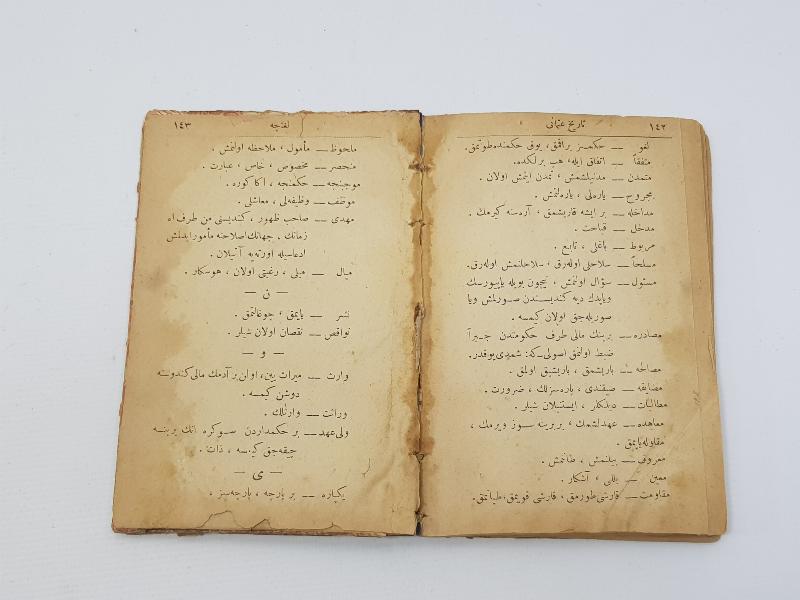 ١٤٢ تاريخ عثمانى
لغو — حكمسز براقمق ، يوق حكمنده طوتمق.
متفقاً — اتفاق ايله ، هپ برلكده.
متمدن — مدنيلشمش ، تمدن ايتمش اولان .
مجروح — ياره‌لى ، ياره‌لنمش .
مداخله — بر ايشه قاريشمق ، آره‌سنه كيرمك .
مدخل — قباحت .
مربوط — باغلى ، تابع .
مسلحاً — سلاحلى اوله‌رق ، سلاحلنمش اوله‌رق.
مسئول — سؤال اولنمش ، نيچون بويله ياپيورسك
وياپدك ديه كنديسندن صورلمش ويا
صوريله‌جق اولان كيمسه .
مصادره — برينك مالى طرف حكومتدن جبراً
ضبط اولنمق اصولى كه : شمدى يوقدر.
مصالحه — باريشمق ، باريشيق اولمق .
مضايقه — صيقندى ، پاره‌سزلك ، ضرورت .
مطالبات — ديلكلر ، ايستنيلان شيلر .
معاهده — عهدلشمك ، بربرينه سوز ويرمك ،
مقاوله ياپمق .
معروف — بيلنمش ، طانمش .
معين — بللى ، آشكار .
مقاومت — قارشى طورمق ، قارشى قويمق ، طيانمق.
لغتچه ١٤٣
ملحوظ — مأمول ، ملاحظه اولنمش .
منحصر — مخصوص ، خاص ، عبارت .
موجبنجه — حكمنجه ، اكا كوره .
موظف — وظيفه‌لى ، معاشلى .
مهدى — صاحب ظهور ، كنديسنى من طرف الله
زمانك ، جهانك اصلاحنه مأمور ايدلمش
ادعاسيله اورته‌يه آتيلان .
ميال — ميلى ، رغبتى اولان ، هوسكار .
— ن —
نشر — يايمق ، چوغالتمق .
نواقص — نقصان اولان شيلر .
— و —
وارث — ميراث يين ، اولن بر آدمك مالى كندوسنه
دوشن كيمسه .
وراثت — وارثلك .
ولى عهد — بر حكمداردن سوكره انك يرينه
چيقه‌جق كيمسه ، ذات .
— ى —
يكپاره — بر پارچه ، پارچه‌سز .